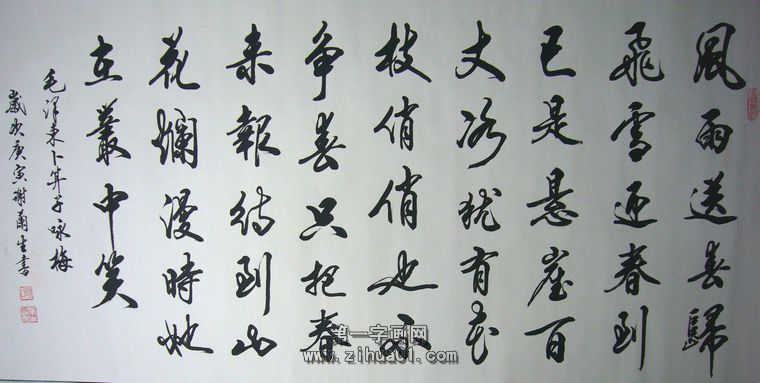 風雨送春歸
飛雪迎春到
已是悬崖百
丈冰犹有花
枝俏俏也不
争春只把春
来報待到山
花爛漫時她
在叢中笑
毛泽東卜算子咏梅
歲次庚寅謝生書
第一字画网
www.zihua01.com